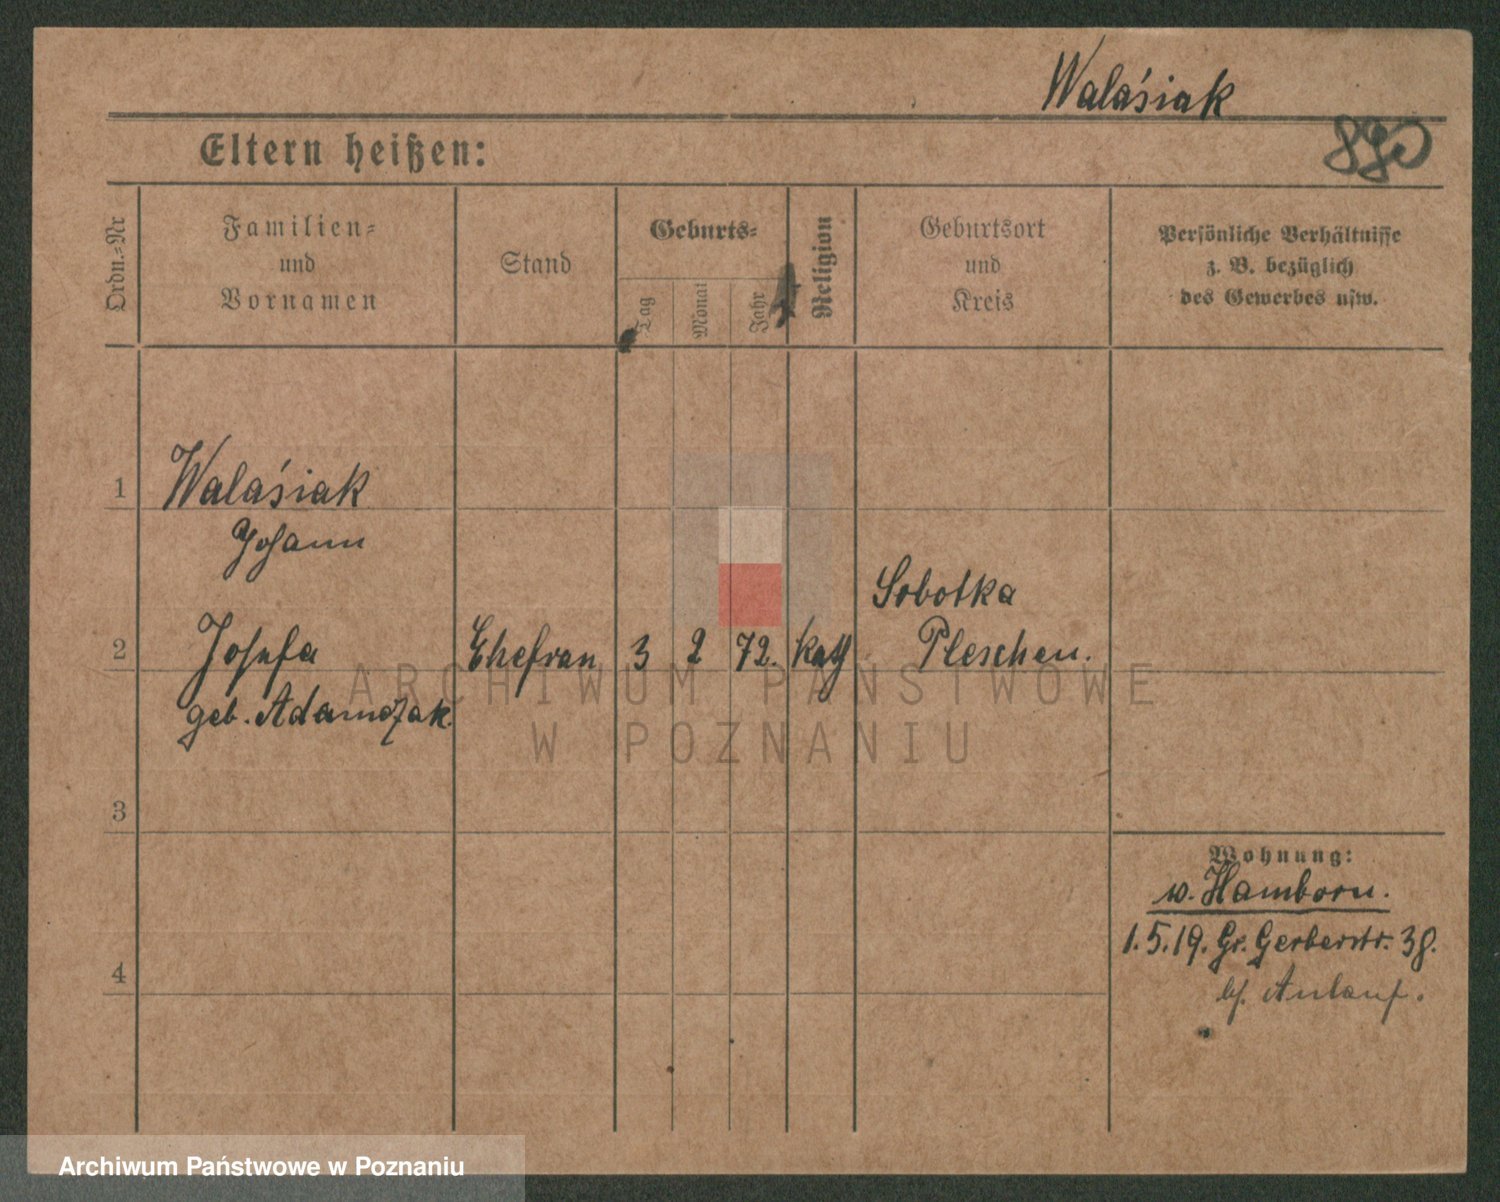 Walaśiak
890
Eltern heißen:
Ordn.=Nr
Familien=
und
Vornamen
Stand
Geburts=
Tag
Monat
Jahr
Religion
Geburtsort
und
Kreis
Persönliche Verhältnisse
z. B. bezüglich
des Gewerbes usw.
1
Walaśiak
Johann
2
Josefa
geb. Adamczak
Ehefrau
3
2
72.
kath
Sobotka
Pleschen.
3
4
Wohnung:
w. Hamborn.
1.5.19. Gr. Gerberstr. 38.
ARCHIWUM PAŃSTWOWE
W POZNANIU
Archiwum Państwowe w Poznaniu